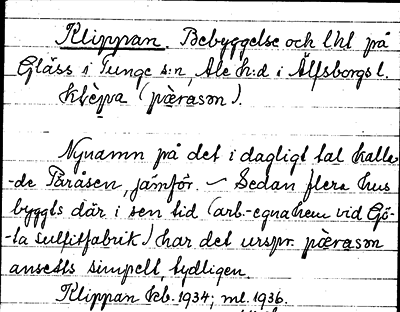 Klippan. Bebyggelse och lkl på
Gläss i Tunge s:n, Ale h:d i Älfsborgs l.
klèpa (pærasən).
Nynamn på det i dagligt tal kalla-
-de Päråsen, jämför. – Sedan flera hus
byggts där i sen tid (arb.-egnahem vid Gö-
-ta sulfitfabrik) har det urspr. pærasən
ansetts simpelt, tydligen.
Klippan kb. 1934; ml. 1936.